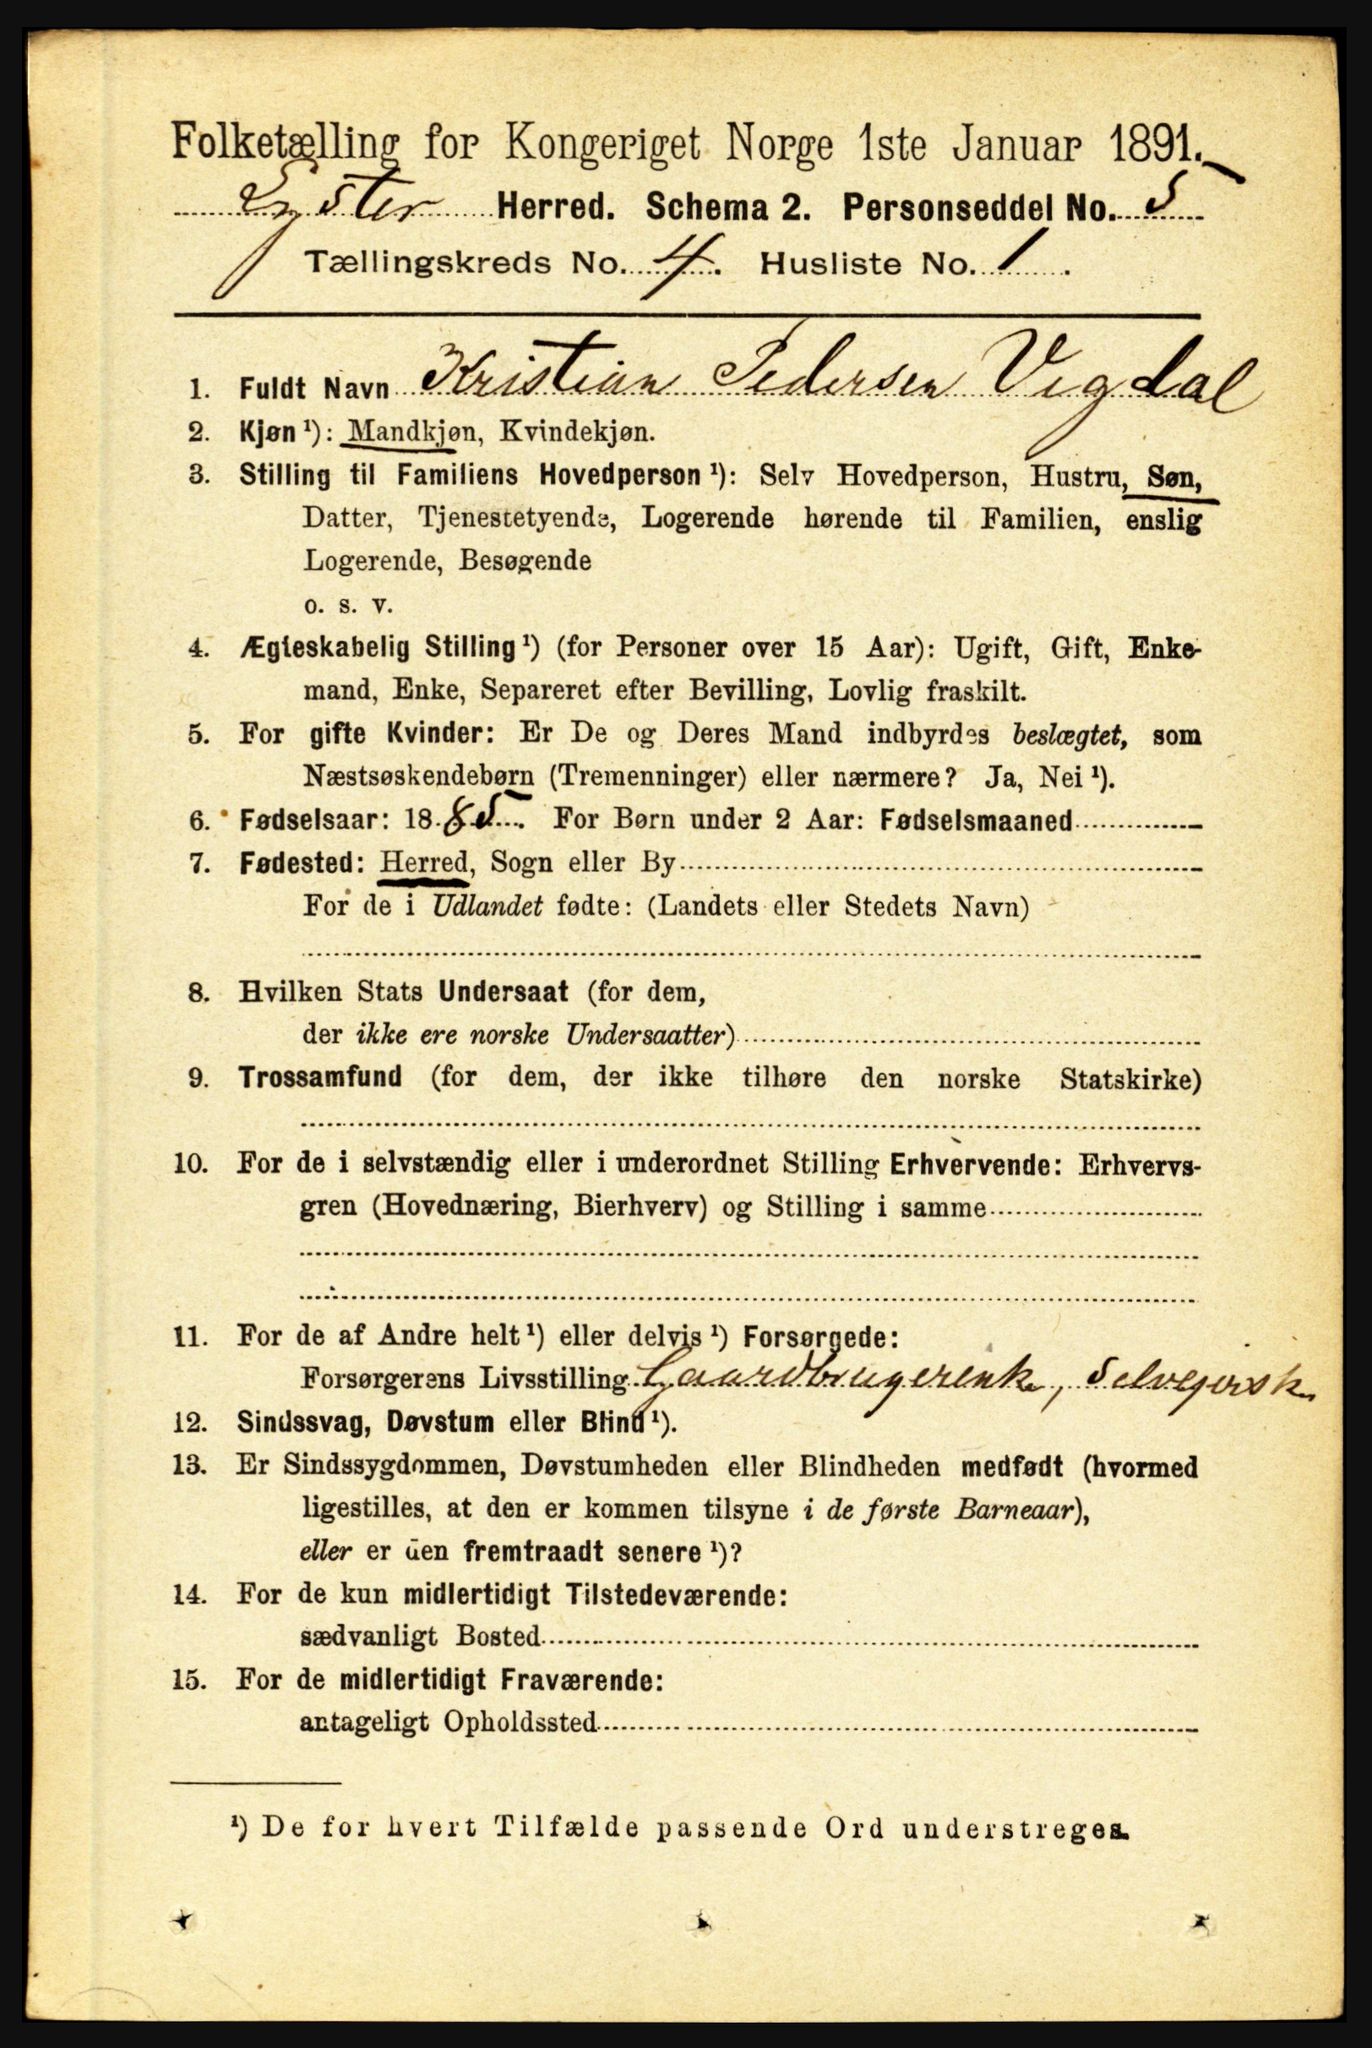 Folketælling for Kongeriget Norge 1ste Januar 1891.
Lyster Herred. Schema 2. Personseddel No. 5
Tællingskreds No. 4. Husliste No. 1.
1. Fuldt Navn Kristian Pedersen Vigdal
2. Kjøn ¹): Mandkjøn, Kvindekjøn.
3. Stilling til Familiens Hovedperson ¹): Selv Hovedperson, Hustru, Søn,
Datter, Tjenestetyende, Logerende hørende til Familien, enslig
Logerende, Besøgende
o. s. v.
4. Ægteskabelig Stilling ¹) (for Personer over 15 Aar): Ugift, Gift, Enke-
mand, Enke, Separeret efter Bevilling, Lovlig fraskilt.
5. For gifte Kvinder: Er De og Deres Mand indbyrdes beslægtet, som
Næstsøskendebørn (Tremenninger) eller nærmere? Ja, Nei ¹).
6. Fødselsaar: 1885. For Børn under 2 Aar: Fødselsmaaned
7. Fødested: Herred, Sogn eller By
For de i Udlandet fødte: (Landets eller Stedets Navn)
8. Hvilken Stats Undersaat (for dem,
der ikke ere norske Undersaatter)
9. Trossamfund (for dem, der ikke tilhøre den norske Statskirke)
10. For de i selvstændig eller i underordnet Stilling Erhvervende: Erhvervs-
gren (Hovednæring, Bierhverv) og Stilling i samme
11. For de af Andre helt ¹) eller delvis ¹) Forsørgede:
Forsørgerens Livsstilling Gaardbrugerenke, Selvejersk
12. Sindssvag, Døvstum eller Blind ¹).
13. Er Sindssygdommen, Døvstumheden eller Blindheden medfødt (hvormed
ligestilles, at den er kommen tilsyne i de første Barneaar),
eller er den fremtraadt senere ¹)?
14. For de kun midlertidigt Tilstedeværende:
sædvanligt Bosted
15. For de midlertidigt Fraværende:
antageligt Opholdssted
¹) De for hvert Tilfælde passende Ord understreges.